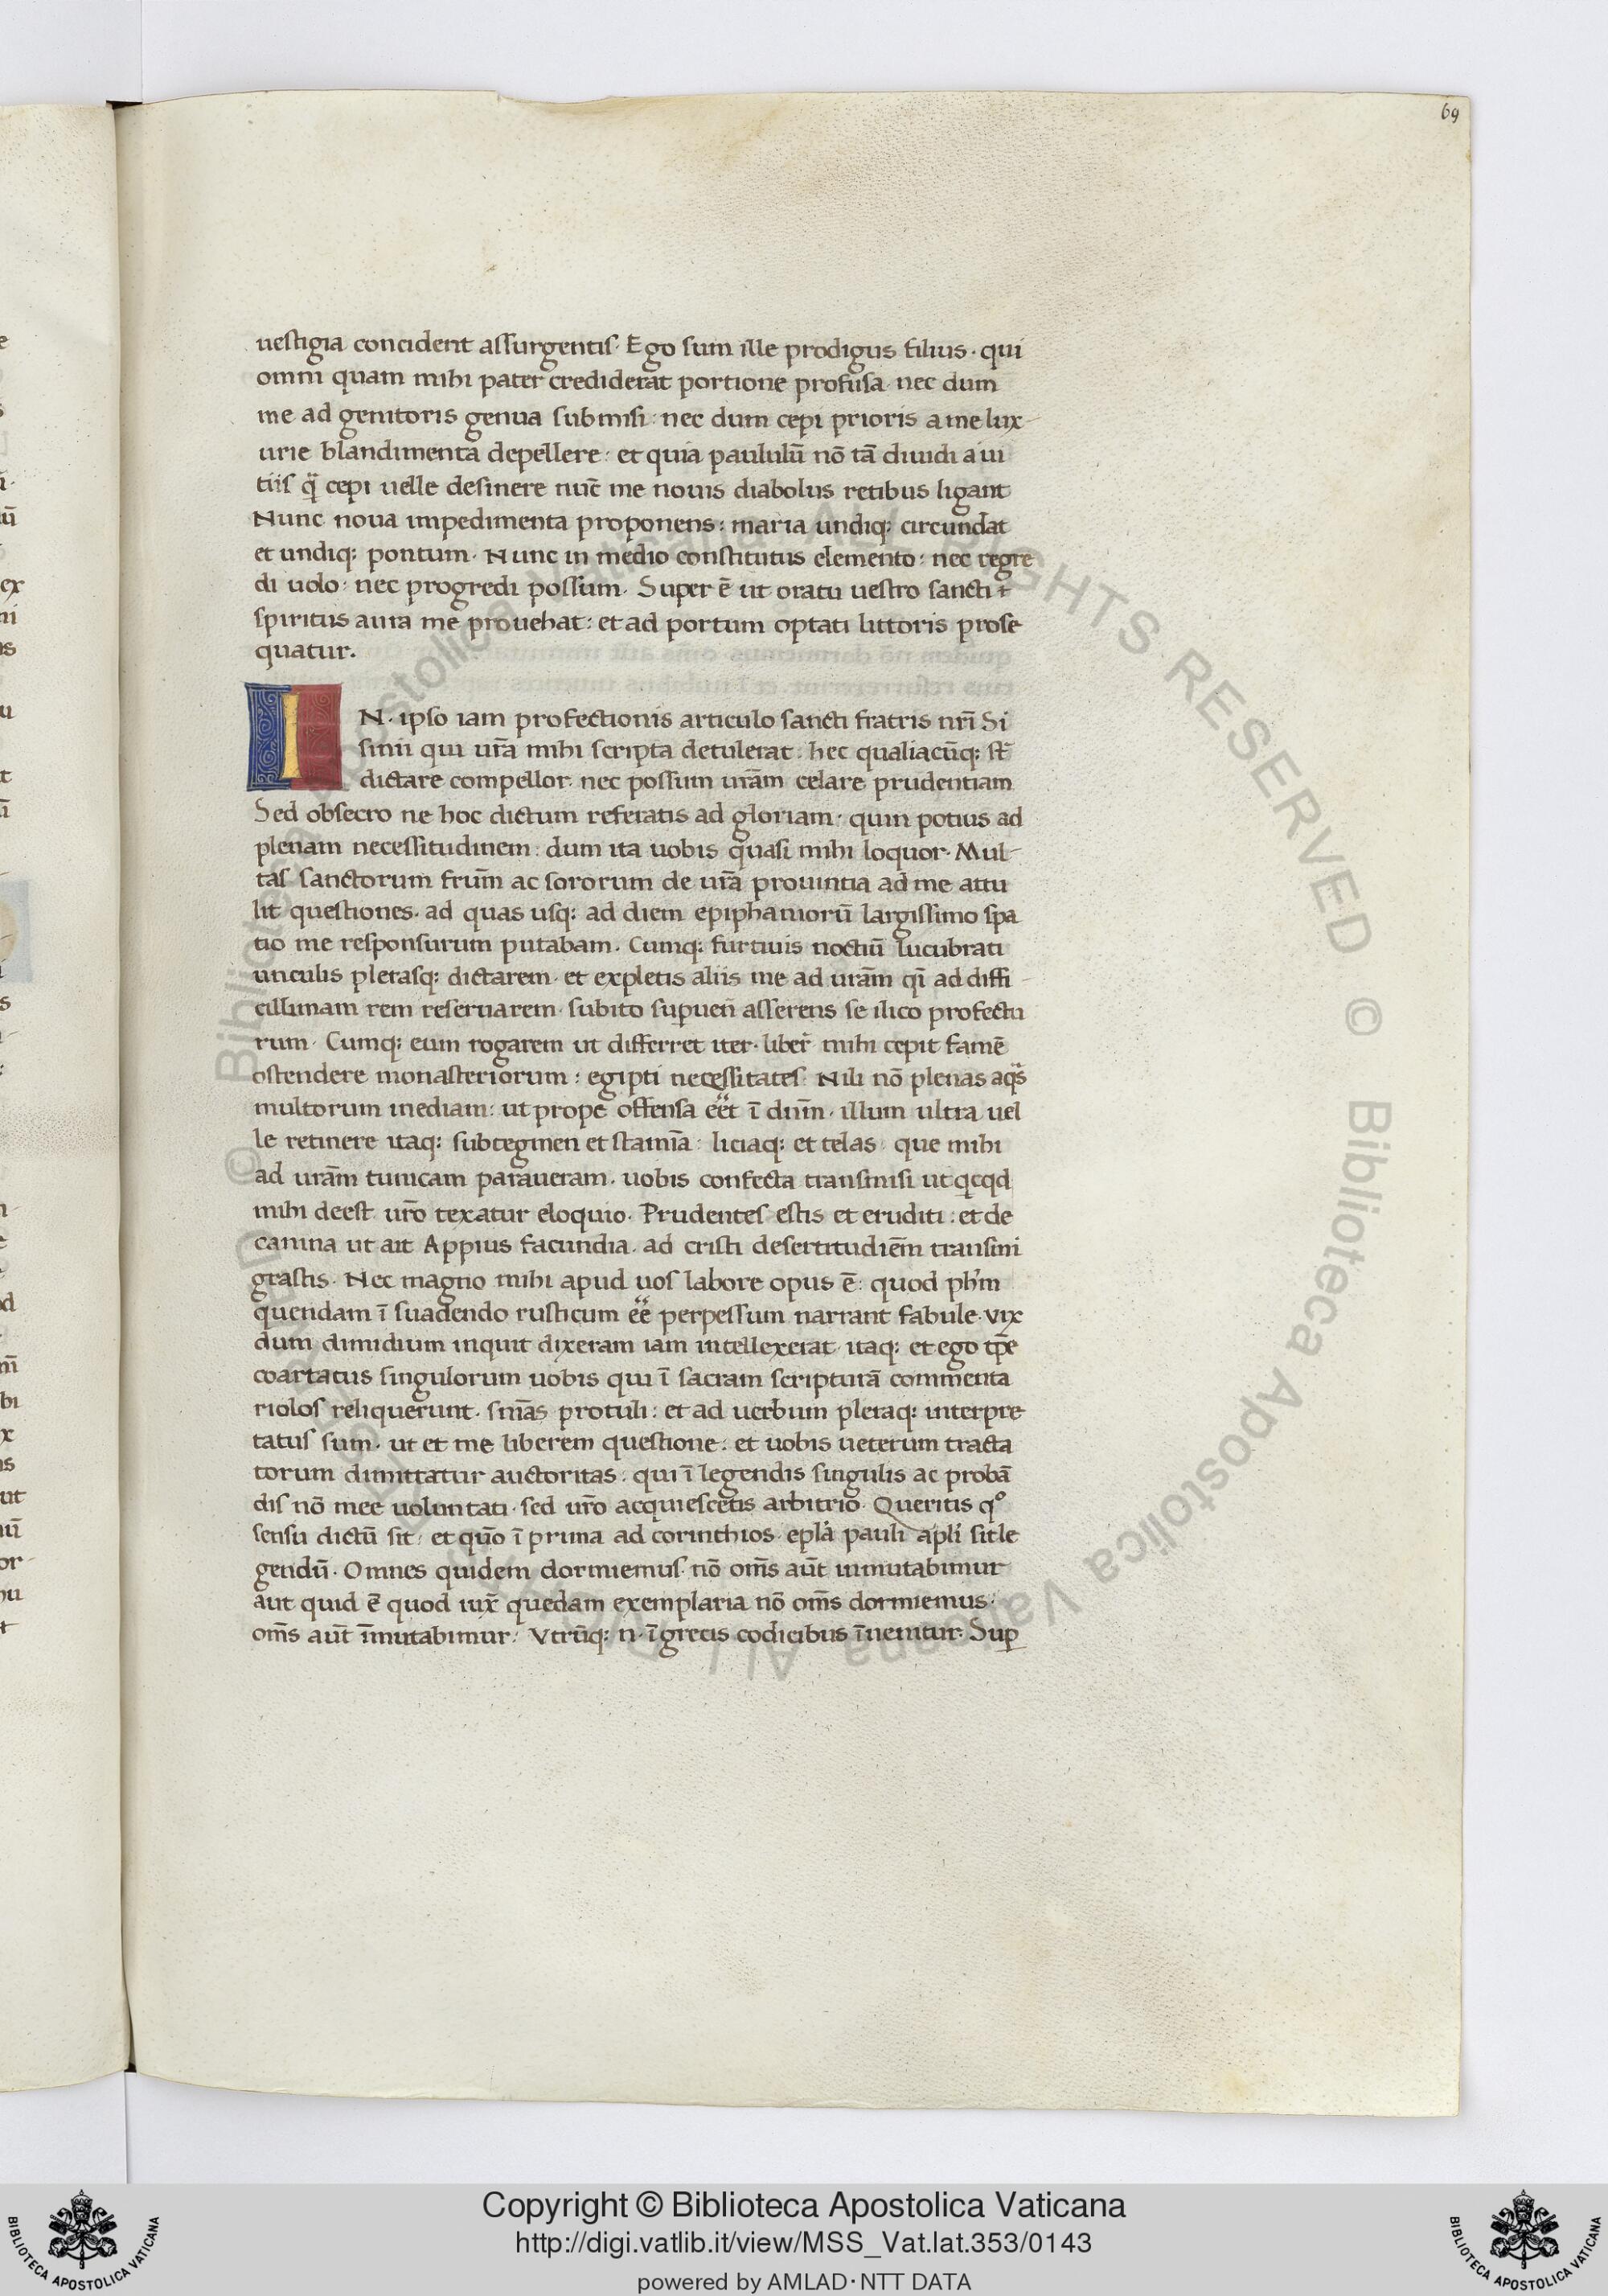 69
uestigia concident assurgentis· Ego sum ille prodigus filius· qui
omni quam mihi pater crediderat portione profusa· nec dum
me ad genitoris genua submisi: nec dum cepi prioris a me lux-
urie blandimenta depellere: et quia paululū nō tā diuidi a ui
tiis q̄ cepi uelle desinere nūc me nouis diabolus retibus ligant
Nunc noua impedimenta proponens: maria undiq; circundat
et undiq; pontum· Nunc in medio constitutus elemento: nec regre
di uolo: nec progredi possum· Super ē ut oratu uestro sancti
spiritus aura me prouehat: et ad portum optati littoris prose
quatur.
IN· ipso iam profectionis articulo sancti fratris nr̄i Si
sinii qui ur̄a mihi scripta detulerat: hec qualiacūq; st̄
dictare compellor· nec possum ur̄am celare prudentiam
Sed obsecro ne hoc dictum referatis ad gloriam· quin potius ad
plenam necessitudinem: dum ita uobis quasi mihi loquor· Mul-
tas sanctorum frūm ac sororum de ur̄a prouintia ad me attu
lit questiones· ad quas usq; ad diem epiphaniorū largissimo spa
tio me responsurum putabam· Cumq; furtiuis noctiū lucubrati
unculis plerasq; dictarem· et expletis aliis me ad ur̄am qī ad diffi-
cillimam rem reseruarem· subito supuen̄ asserens se ilico profectu
rum· Cumq; eum rogarem ut differret iter· liber̄ mihi cepit famē
ostendere monasteriorum: egipti necessitates· Nili nō plenas aq̄s
multorum inediam: ut prope offensa eēt ī dn̄m· illum ultra uel
le retinere itaq; subtegmen et stamīa: liciaq; et telas· que mihi
ad ur̄am tunicam paraueram· uobis confecta transmisi ut qcqd
mihi deest ur̄o texatur eloquio· Prudentes estis et eruditi: et de
canina ut ait Appius facundia· ad cristi desertitudiēm transmi
grastis· Nec magno mihi apud uos labore opus ē: quod ph̄m
quendam ī suadendo rusticum eē perpessum narrant fabule· vix
dum dimidium inquit dixeram iam intellexerat· itaq; et ego tp̄e
coartatus singulorum uobis qui ī sacram scripturā commenta
riolos reliquerunt· sn̄ias protuli: et ad uerbum pleraq; interpre
tatus sum· ut et me liberem questione: et uobis ueterum tracta
torum dimittatur auctoritas: qui ī legendis singulis ac probā
dis nō mee uoluntati· sed ur̄o acquiescetis arbitrio· Queritis qº
sensu dictū sit: et quō ī prima ad corinthios epl̄a pauli apl̄i sit le
gendū· Omnes quidem dormiemus· nō om̄s aūt inmutabimur
aut quid ē quod iux̄ quedam exemplaria nō om̄s dormiemus:
om̄s aūt īmutabimur: Vtrūq; n· ī grecis codicibus īuenitur· Sup
© Biblioteca Apostolica Vaticana ALL RIGHTS RESERVED © Biblioteca Apostolica Vaticana ALL RIGHTS RESERVED
BIBLIOTECA APOSTOLICA VATICANA
Copyright © Biblioteca Apostolica Vaticana
http://digi.vatlib.it/view/MSS_Vat.lat.353/0143
powered by AMLAD·NTT DATA
BIBLIOTECA APOSTOLICA VATICANA